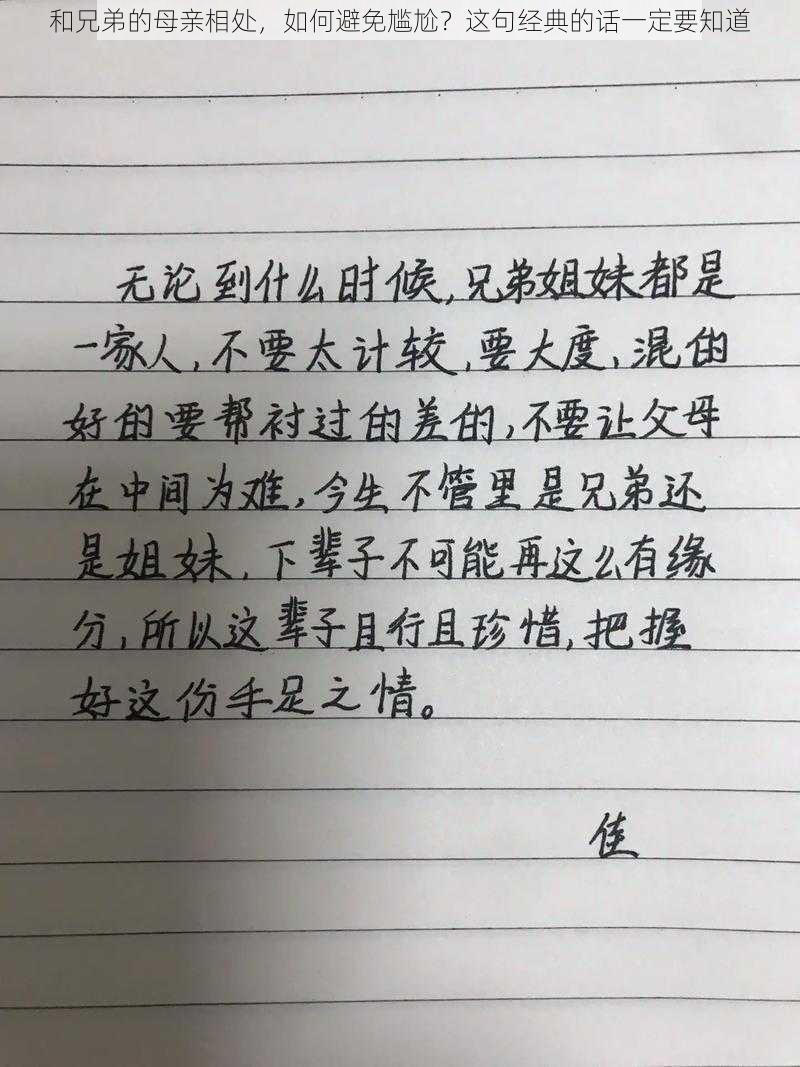 和兄弟的母亲相处，如何避免尴尬？这句经典的话一定要知道
无论到什么时候,兄弟姐妹都是
一家人,不要太计较,要大度,混的
好的要帮衬过的差的,不要让父母
在中间为难,今生不管里是兄弟还
是姐妹,下辈子不可能再这么有缘
分,所以这辈子且行且珍惜,把握
好这份手足之情。
佳